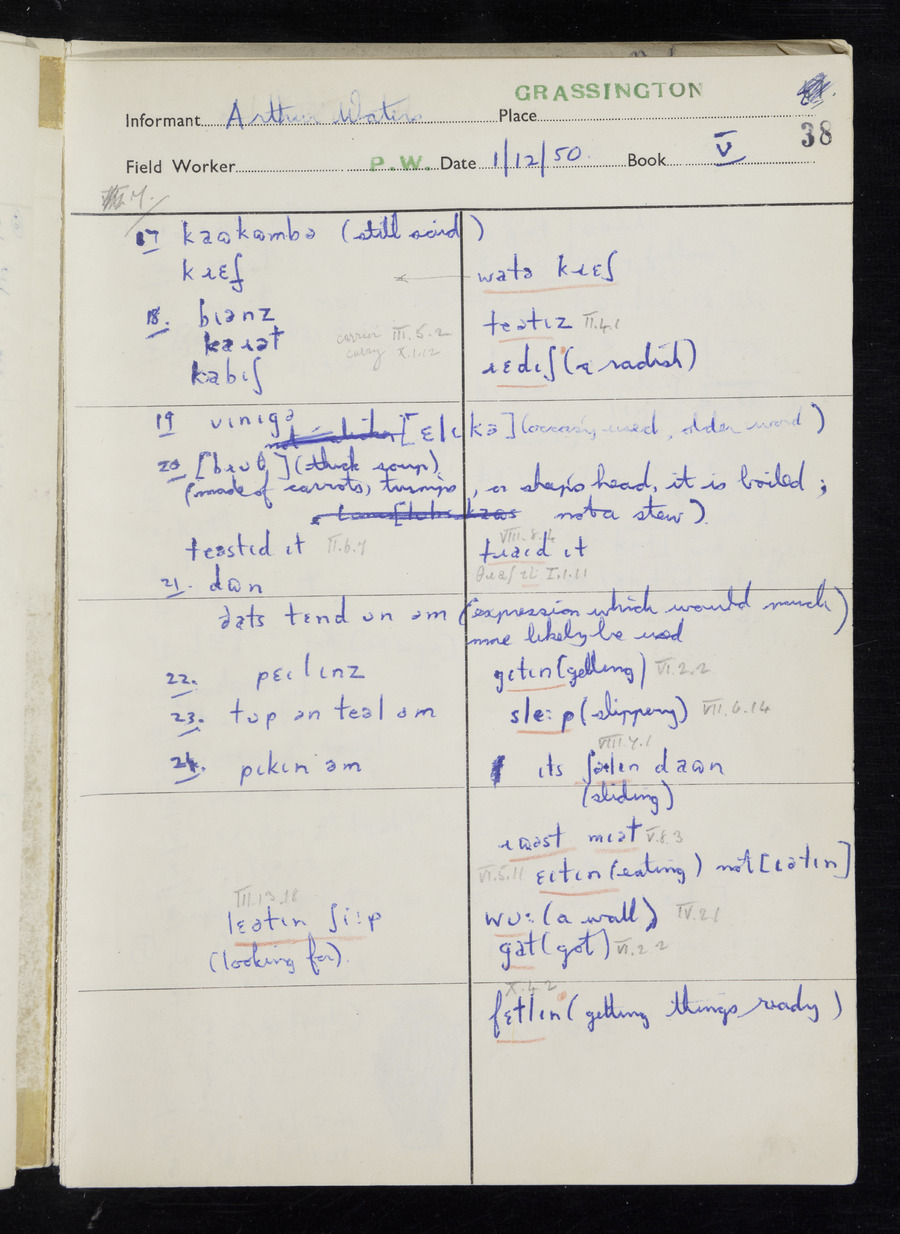 GRASSINGTON
Informant Arthur Waters Place
38
Field Worker P.W. Date 1/12/50. Book V
17 kaʊkəmbə (still said)
kɹɛʃ
watə kɹɛʃ
18. bɪənz
teətɪz II.4.1
kaɹət
carrier III.5.2
carry X.1.12
kabɪʃ
ɹɛdɪʃ (a radish)
19 vɪnɪgə
[ɛlɪkə] (occas. used, older word)
20 [bɹuθ] (thick soup)
(made of carrots, turnips, or sheep's head, it is boiled;
not a stew).
teəstɪd ɪt II.6.7
VIII.8.4
tɹaɪd ɪt
I.1.11
21. dʊn
ðats tɛnd ʊn əm (expression which would much
more likely be used)
22. pɛɪlɪnz
gɛtɪn (getting) VI.2.2
23. tʊp ən teəl əm
sleːp (slippery) VII.6.14
VIII.7.1
24. pɪkɪn əm
ɪts ʃɔtlɪn daʊn
(sliding)
ɹʊəst mɪət V.8.3
VI.5.11 ɛɪtɪn (eating) not [ɪətɪn]
III.13.18
lɛətɪn ʃiːp
wʊː (a wall) IV.2.1
(looking for).
gat (got) VI.2.2
X.4.2
fɛtlɪn (getting things ready)